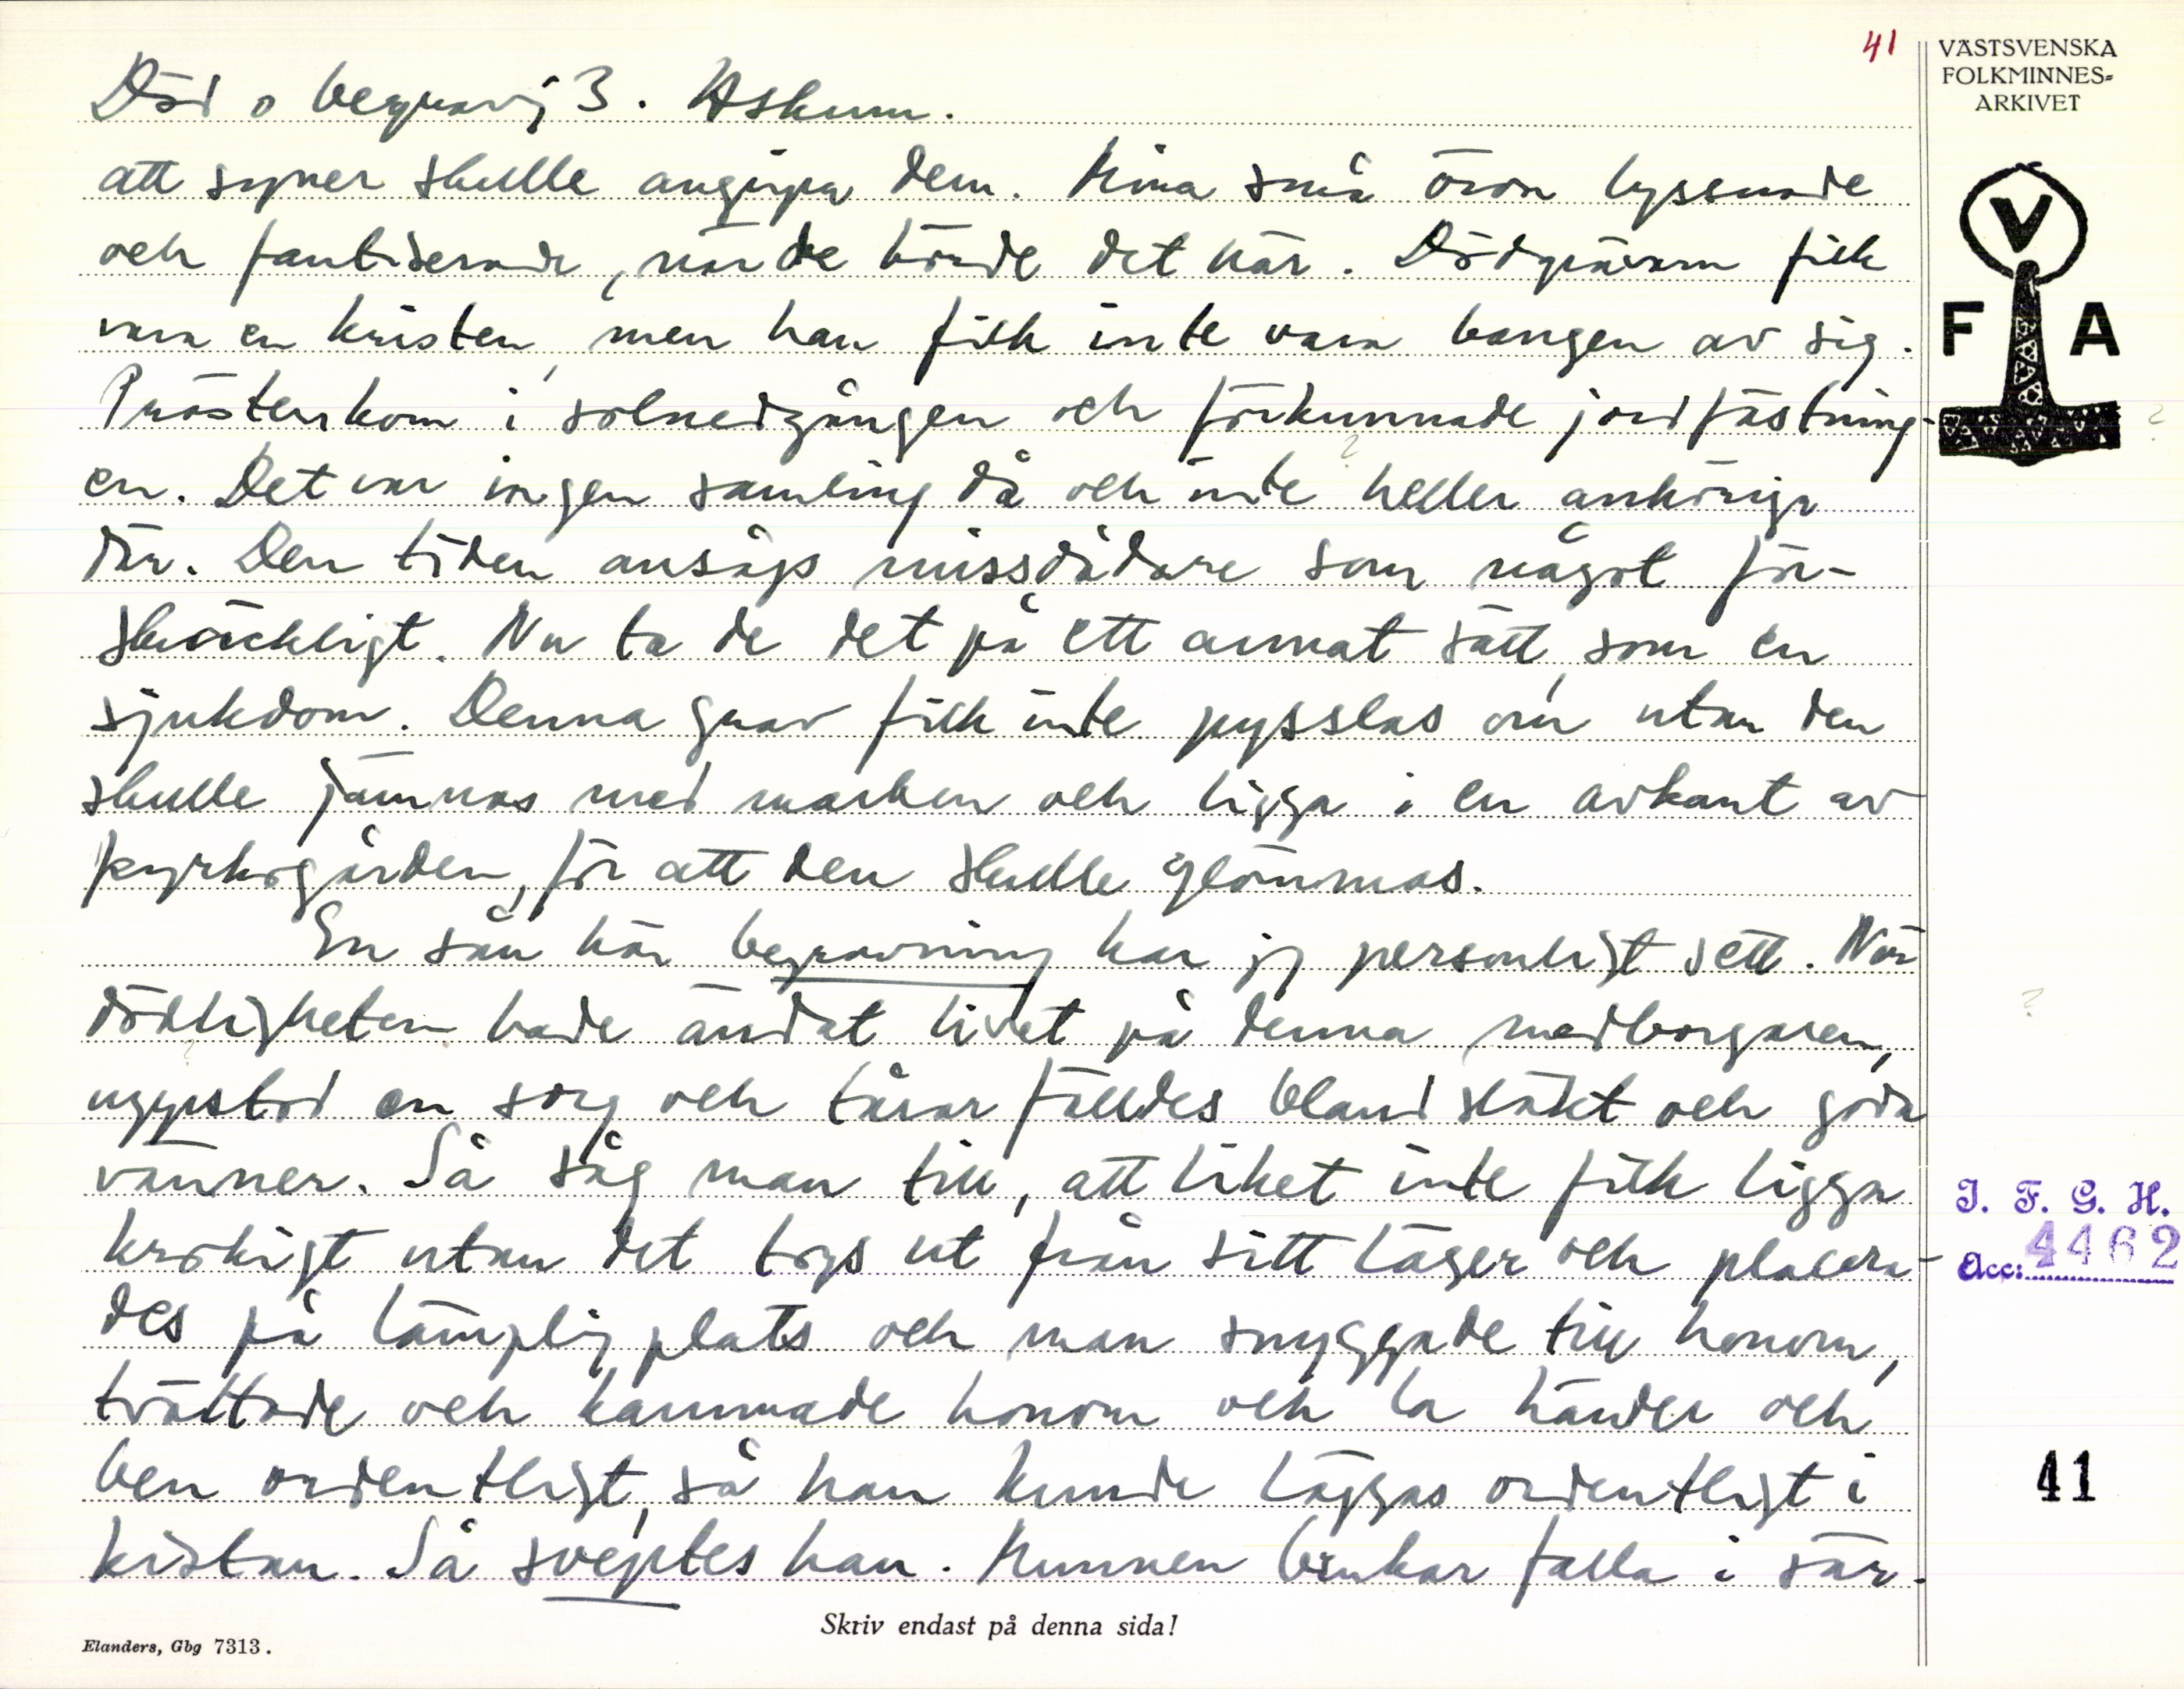 41
VÄSTSVENSKA
FOLKMINNES-
ARKIVET
Död o begravn 3. Askum.
att syner skulle angripa dem. Mina små öron lyssnade
och fantiserade, när de hörde det här. Dödgrävarn fick
vara en kristen, men han fick inte vara bangen av sig.
Prästen kom i solnedgången och förkunnade jordfästning-
en. Det var ingen samling då och inte heller anhöriga
där. Den tiden ansågs missdådare som något för-
skräckligt. Nu ta de det på ett annat sätt, som en
sjukdom. Denna grav fick inte pysslas om utan den
skulle jämnas med marken och ligga i en avkant av
kyrkogården, för att den skulle glömmas.
En sån här begravning har jag personligt sett. När
dödligheten hade ändat livet på denna medborgaren,
uppstod en sorg och tårar fälldes bland släkt och goda
vänner. Så såg man till, att liket inte fick ligga
krokigt utan det togs ut från sitt läger och placera-
des på lämplig plats och man snyggade till honom,
tvättade och kammade honom och la händer och
ben ordentligt, så han kunde läggas ordentligt i
kistan. Så sveptes han. Munnen brukar falla i sär.
V
F A
J. F. G. H.
Acc: 4462
41
Skriv endast på denna sida!
Elanders, Gbg 7313.